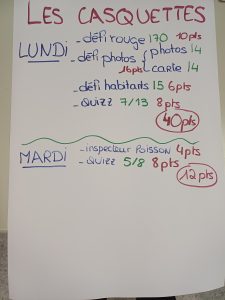 LES CASQUETTES
LUNDI
- défi rouge 170 10pts
- défi photos { photos 14
16pts carte 14
- défi habitants 15 6pts
- quizz 7/13 8pts
40pts
MARDI
- inspecteur Poisson 4pts
- quizz 5/8 8pts
12pts